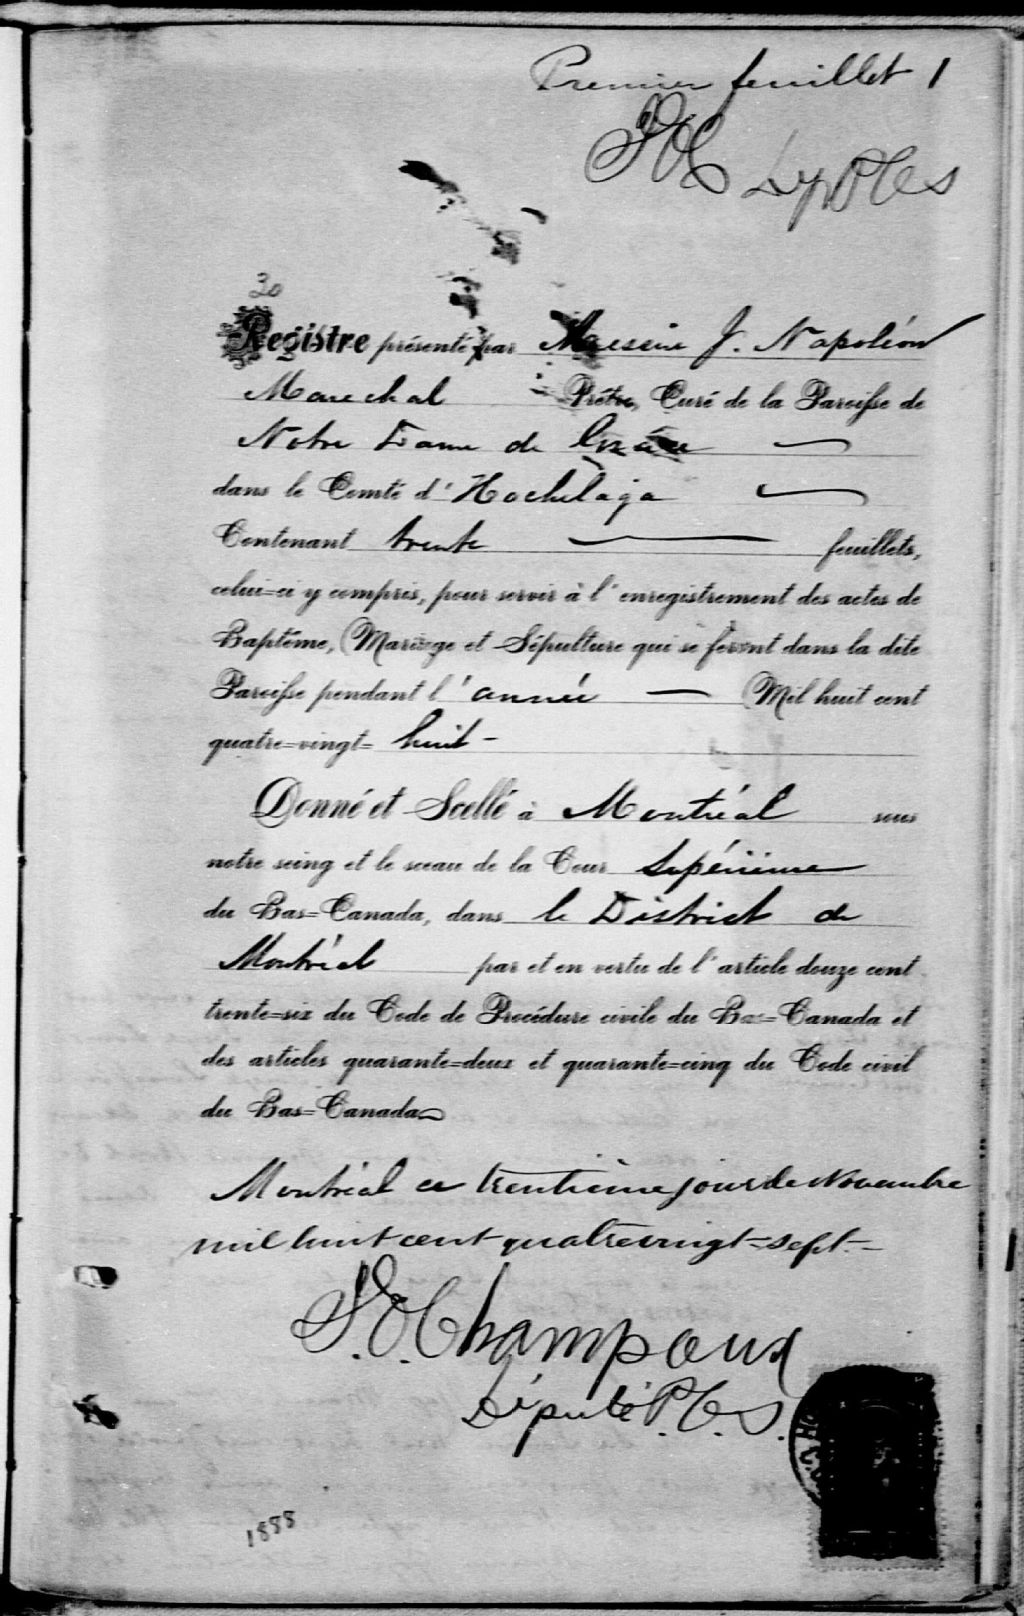 Premier feuillet 1
Dep P C S
30
Registre présenté par Messire J. Napoléon
Marechal Prêtre, Curé de la Paroisse de
Notre Dame de Grâce
dans le Comté d'Hochelaga
Contenant trente feuillets,
celui=ci y compris, pour servir à l'enregistrement des actes de
Baptême, Mariage et Sépulture qui se feront dans la dite
Paroisse pendant l'année — Mil huit cent
quatre=vingt= huit -
Donné et Scellé à Montréal sous
notre seing et le sceau de la Cour Supérieure
du Bas=Canada, dans le District de
Montréal par et en vertu de l'article douze cent
trente=six du Code de Procédure civile du Bas=Canada et
des articles quarante=deux et quarante=cinq du Code civil
du Bas=Canada
Montréal ce trentième jour de Novembre
mil huit cent quatrevingt=sept.-
Champoux
Député P.C.S.
1888